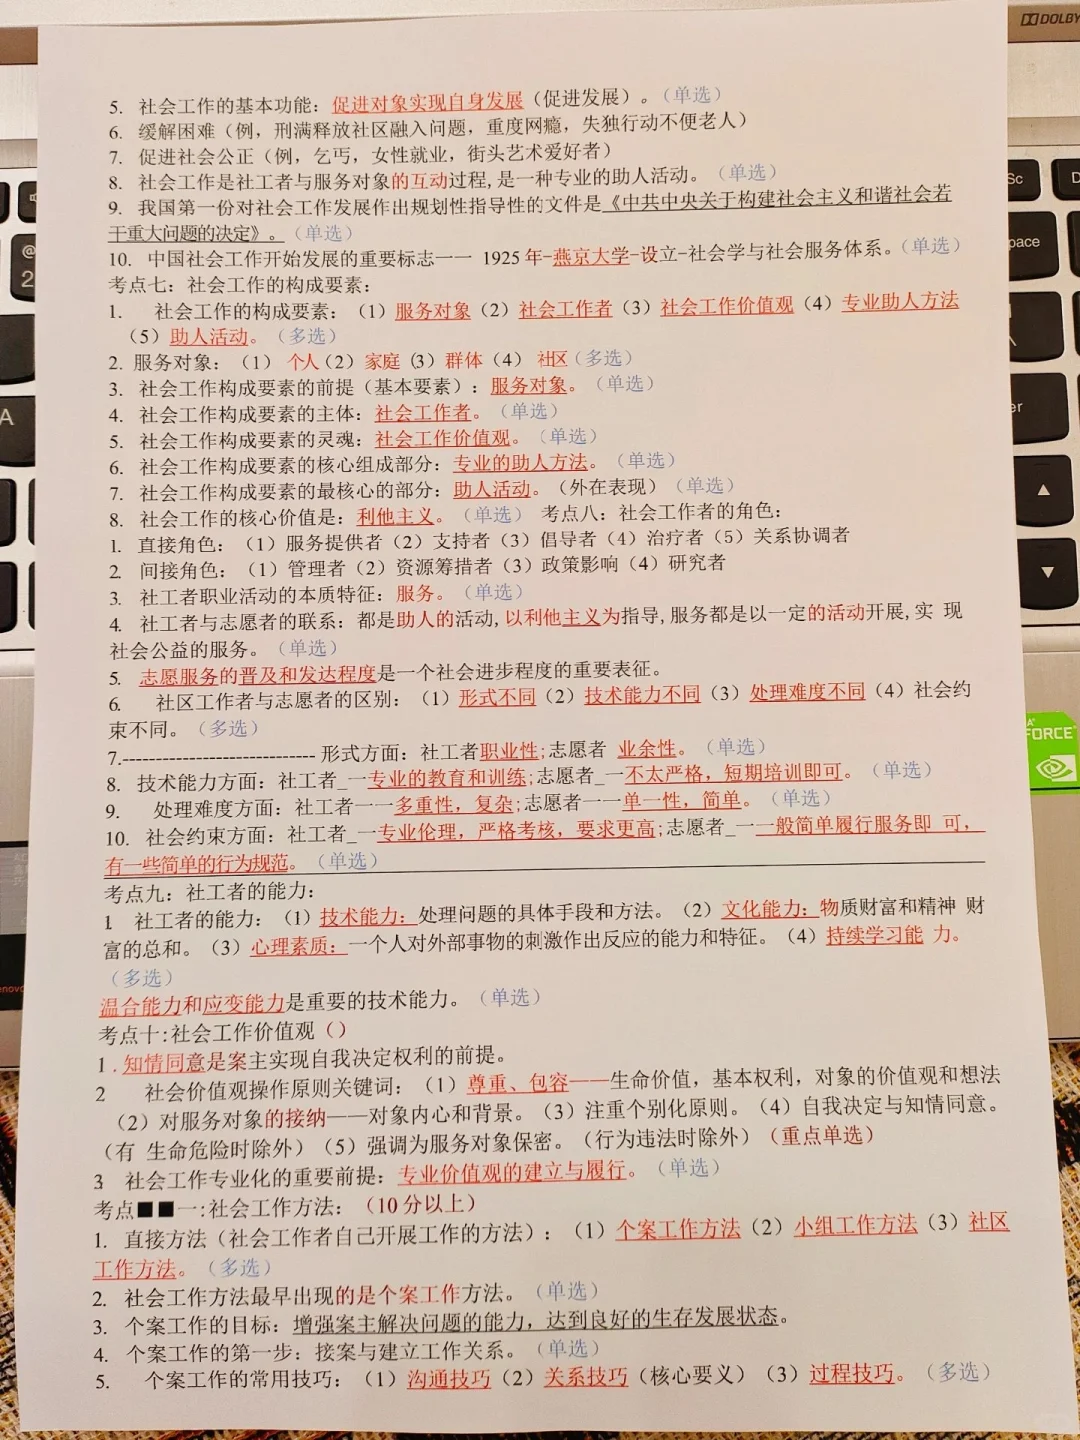 5. 社会工作的基本功能：促进对象实现自身发展（促进发展）。（单选）
6. 缓解困难（例，刑满释放社区融入问题，重度网瘾，失独行动不便老人）
7. 促进社会公正（例，乞丐，女性就业，街头艺术爱好者）
8. 社会工作是社工者与服务对象的互动过程,是一种专业的助人活动。（单选）
9. 我国第一份对社会工作发展作出规划性指导性的文件是《中共中央关于构建社会主义和谐社会若
干重大问题的决定》。（单选）
10. 中国社会工作开始发展的重要标志一一 1925年-燕京大学-设立-社会学与社会服务体系。（单选）
考点七：社会工作的构成要素：
1. 社会工作的构成要素：（1）服务对象（2）社会工作者（3）社会工作价值观（4）专业助人方法
（5）助人活动。（多选）
2. 服务对象：（1） 个人（2） 家庭（3） 群体（4） 社区（多选）
3. 社会工作构成要素的前提（基本要素）：服务对象。（单选）
4. 社会工作构成要素的主体：社会工作者。（单选）
5. 社会工作构成要素的灵魂：社会工作价值观。（单选）
6. 社会工作构成要素的核心组成部分：专业的助人方法。（单选）
7. 社会工作构成要素的最核心的部分：助人活动。（外在表现）（单选）
8. 社会工作的核心价值是：利他主义。（单选） 考点八：社会工作者的角色：
1. 直接角色：（1）服务提供者（2）支持者（3）倡导者（4）治疗者（5）关系协调者
2. 间接角色：（1）管理者（2）资源筹措者（3）政策影响（4）研究者
3. 社工者职业活动的本质特征：服务。（单选）
4. 社工者与志愿者的联系：都是助人的活动,以利他主义为指导,服务都是以一定的活动开展,实 现
社会公益的服务。（单选）
5. 志愿服务的普及和发达程度是一个社会进步程度的重要表征。
6. 社区工作者与志愿者的区别：（1）形式不同（2）技术能力不同（3）处理难度不同（4）社会约
束不同。（多选）
7.----------------------------- 形式方面：社工者职业性;志愿者 业余性。（单选）
8. 技术能力方面：社工者_一专业的教育和训练;志愿者_一不太严格，短期培训即可。（单选）
9. 处理难度方面：社工者一一多重性，复杂;志愿者一一单一性，简单。（单选）
10. 社会约束方面：社工者_一专业伦理，严格考核，要求更高;志愿者_一一般简单履行服务即 可，
有一些简单的行为规范。（单选）
考点九：社工者的能力：
1 社工者的能力：（1）技术能力：处理问题的具体手段和方法。（2）文化能力：物质财富和精神 财
富的总和。（3）心理素质：一个人对外部事物的刺激作出反应的能力和特征。（4）持续学习能 力。
（多选）
温合能力和应变能力是重要的技术能力。（单选）
考点十:社会工作价值观（）
1 . 知情同意是案主实现自我决定权利的前提。
2 社会价值观操作原则关键词：（1）尊重、包容——生命价值，基本权利，对象的价值观和想法
（2）对服务对象的接纳——对象内心和背景。（3）注重个别化原则。（4）自我决定与知情同意。
（有 生命危险时除外）（5）强调为服务对象保密。（行为违法时除外）（重点单选）
3 社会工作专业化的重要前提：专业价值观的建立与履行。（单选）
考点■■一:社会工作方法：（10分以上）
1. 直接方法（社会工作者自己开展工作的方法）：（1）个案工作方法（2）小组工作方法（3）社区
工作方法。（多选）
2. 社会工作方法最早出现的是个案工作方法。（单选）
3. 个案工作的目标：增强案主解决问题的能力，达到良好的生存发展状态。
4. 个案工作的第一步：接案与建立工作关系。（单选）
5. 个案工作的常用技巧：（1）沟通技巧（2）关系技巧（核心要义）（3）过程技巧。（多选）
DOLBY
Sc
pace
er
@
2
A
FORCE